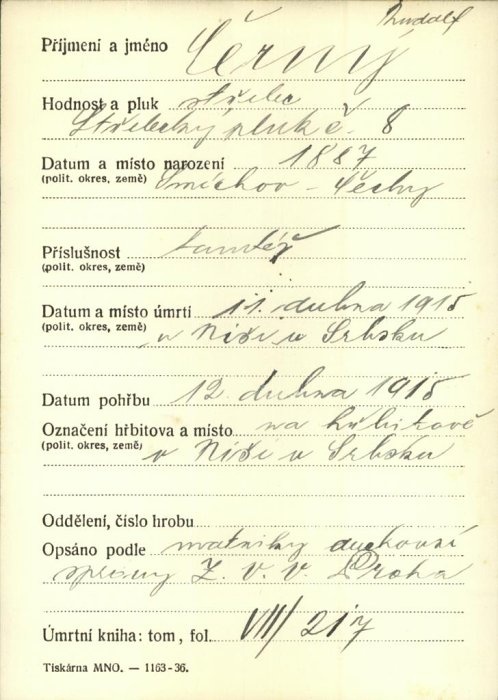 Rudolf
Příjmení a jméno Černý
Hodnost a pluk střelec
Střelecký pluk č. 8
Datum a místo narození 1887
(polit. okres, země) Smíchov - Čechy
Příslušnost tamtéž
(polit. okres, země)
Datum a místo úmrtí 11. dubna 1915
(polit. okres, země) v Niši v Srbsku
Datum pohřbu 12. dubna 1915
Označení hřbitova a místo na hřbitově
(polit. okres, země) v Niši v Srbsku
Oddělení, číslo hrobu
Opsáno podle matriky duchovní
správy Z. V. V. Praha
Úmrtní kniha: tom, fol. VII/217
Tiskárna MNO. — 1163-36.